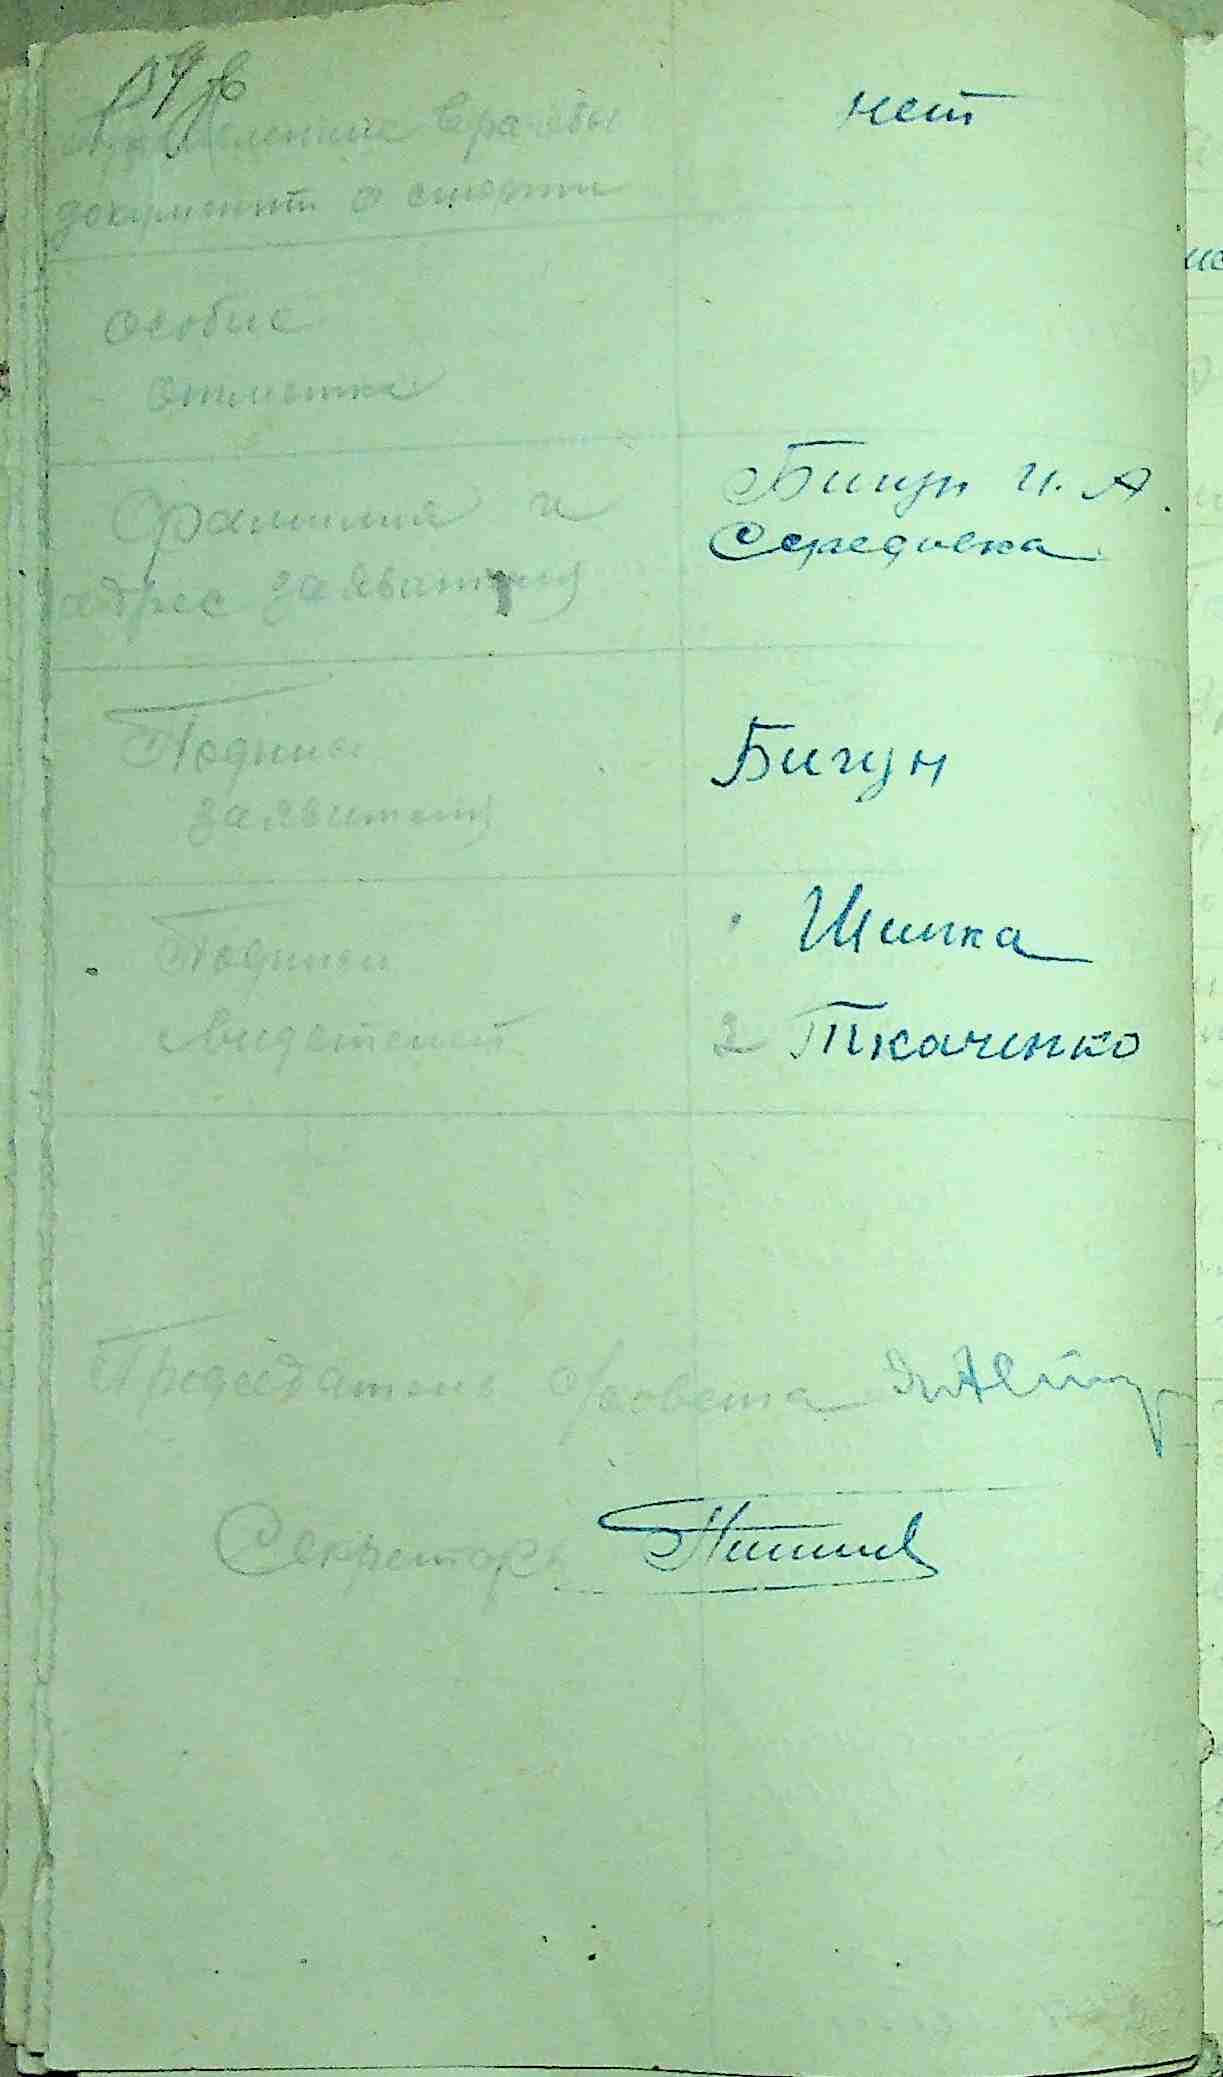 врачебн
документ о смерти
нет
особые
отметка
Фамилия и
адрес заявителя
Бигун И. А.
Середовка
Подпись
заявителя
Бигун
Подписи
свидетелей
Шипка
2 Ткаченко
Председатель с/совета
Секретарь